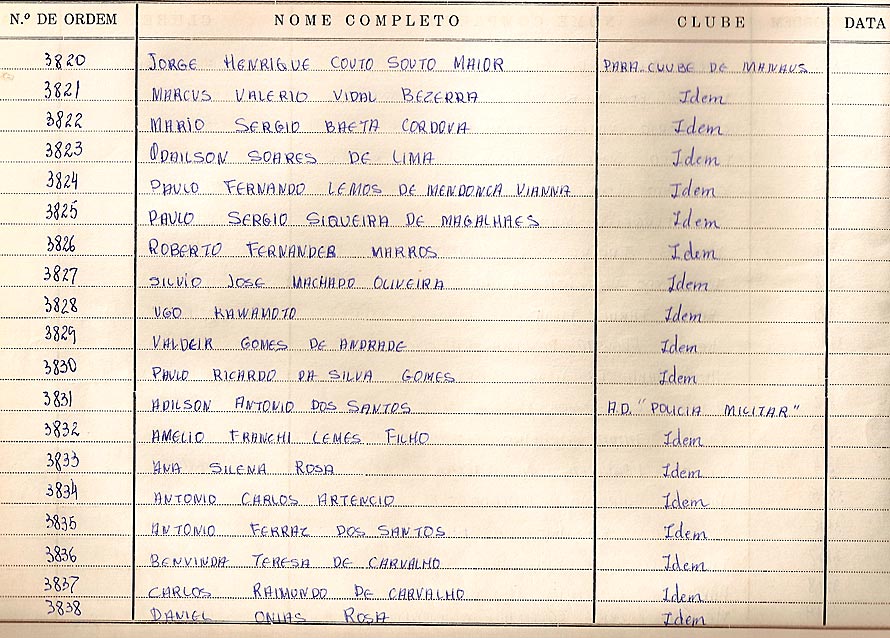 N.º DE ORDEM NOME COMPLETO CLUBE DATA
3820 JORGE HENRIQUE COUTO SOUTO MAIOR PARA-CLUBE DE MANAUS
3821 MARCUS VALERIO VIDAL BEZERRA Idem
3822 MARIO SERGIO BAETA CORDOVA Idem
3823 ODAILSON SOARES DE LIMA Idem
3824 PAULO FERNANDO LEMOS DE MENDONCA VIANNA Idem
3825 PAULO SERGIO SIQUEIRA DE MAGALHAES Idem
3826 ROBERTO FERNANDER MARROS Idem
3827 SILVIO JOSE MACHADO OLIVEIRA Idem
3828 UGO KAWAMOTO Idem
3829 VALDEIR GOMES DE ANDRADE Idem
3830 PAULO RICARDO DA SILVA GOMES Idem
3831 ADILSON ANTONIO DOS SANTOS A.D. "POLICIA MILITAR"
3832 AMELIO FRANCHI LEMES FILHO Idem
3833 ANA SILENA ROSA Idem
3834 ANTONIO CARLOS ARTENCIO Idem
3835 ANTONIO FERRAZ DOS SANTOS Idem
3836 BENVINDA TERESA DE CARVALHO Idem
3837 CARLOS RAIMUNDO DE CARVALHO Idem
3838 DANIEL ONIAS ROSA Idem